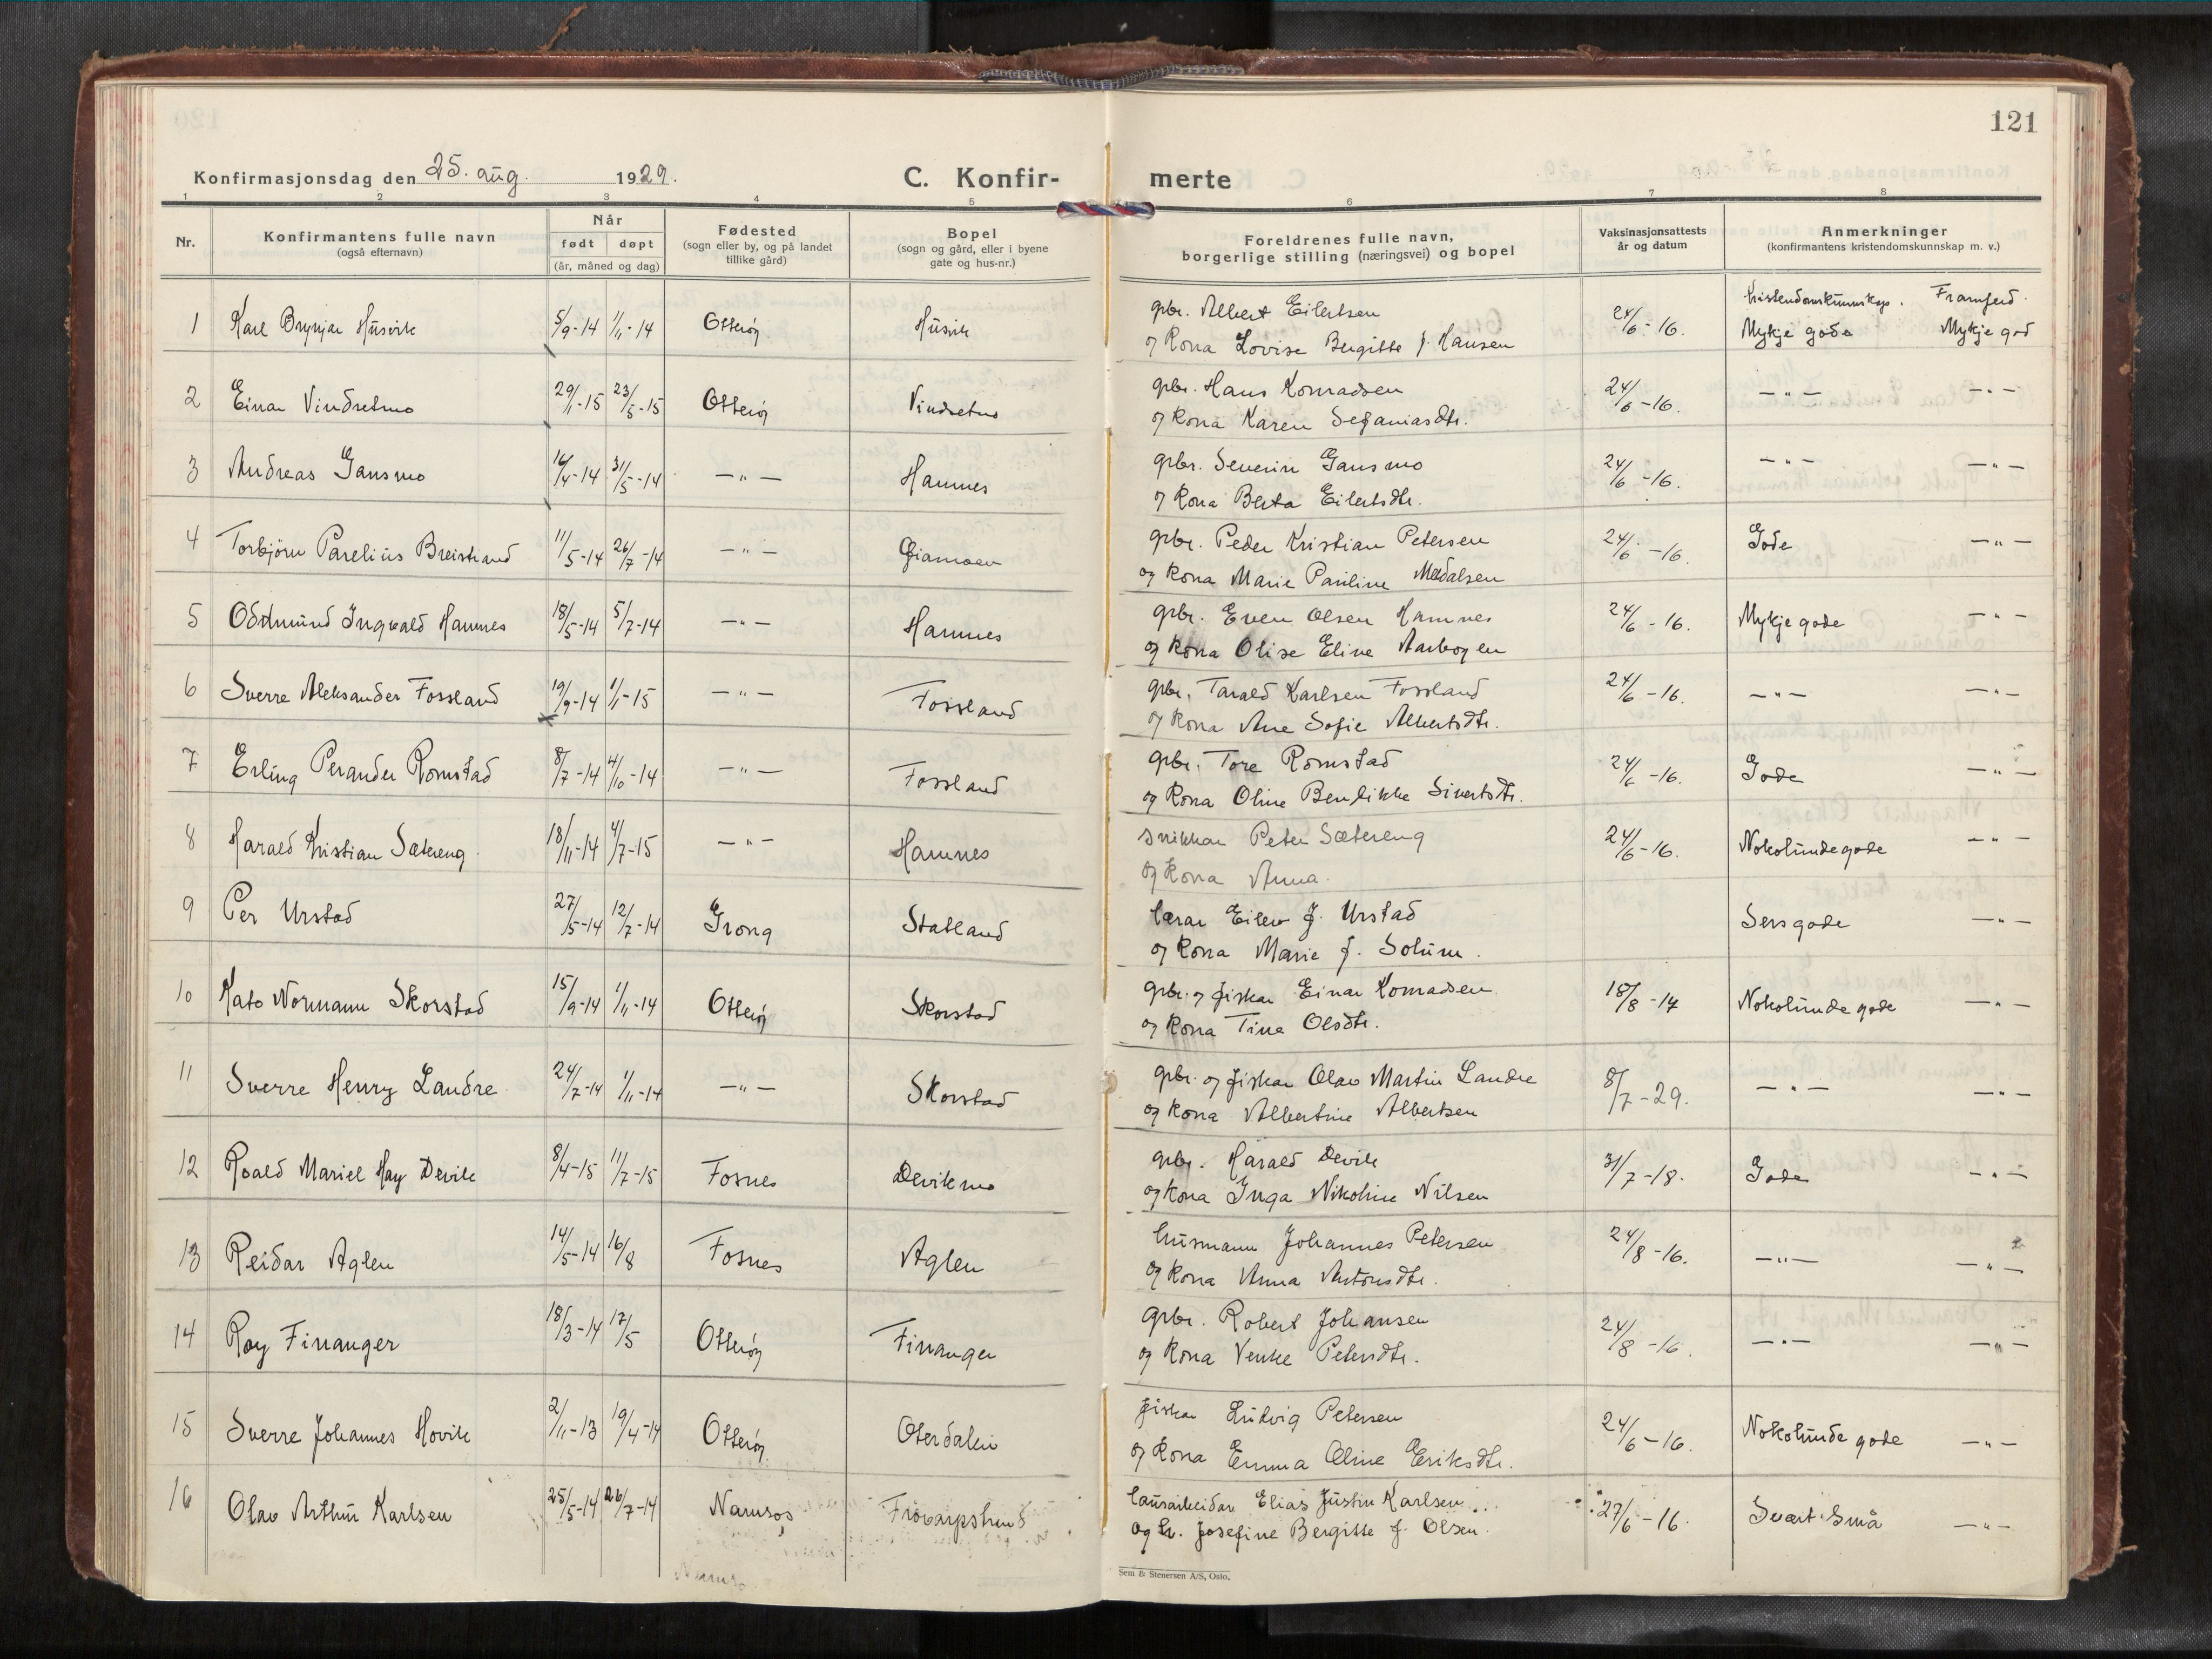 121
Konfirmasjonsdag den 25. aug. 1929.
C. Konfir-
merte
1 2 3 4 5 6 7 8
Nr.
Konfirmantens fulle navn
(også efternavn)
Når
født døpt
(år, måned og dag)
Fødested
(sogn eller by, og på landet
tillike gård)
Bopel
(sogn og gård, eller i byene
gate og hus-nr.)
Foreldrenes fulle navn,
borgerlige stilling (næringsvei) og bopel
Vaksinasjonsattests
år og datum
Anmerkninger
(konfirmantens kristendomskunnskap m. v.)
Kristendomskunnskap. Framferd.
1 Karl Brynjar Husvik 5/9-14 1/11-14 Otterøy Husvik gbr. Albert Eilertsen 24/6-16. Mykje gode Mykje god
og kona Lovise Bergitte f. Hansen
2 Einar Vindsetmo 29/1-15 23/5-15 Otterøy Vindsetmo gbr. Hans Konradsen 24/6-16. —"— —"—
og kona Karen Sefaniasdtr.
3 Andreas Gansmo 16/4-14 31/5-14 —"— Hamnes gbr. Severin Gansmo 24/6-16. —"— —"—
og kona Berta Eilertsdtr.
4 Torbjörn Parelius Breistrand 11/5-14 26/7-14 —"— gbr. Peder Kristian Petersen 24/6-16. Gode —"—
og kona Marie Pauline Medalsen
5 Oddmund Ingvald Hamnes 18/5-14 5/7-14 —"— Hamnes gbr. Even Olsen Hamnes 24/6-16. Mykje gode —"—
og kona Olise Eline Aarbogen
6 Sverre Aleksander Fossland 19/9-14 1/1-15 —"— Fossland gbr. Tarald Karlsen Fossland 24/6-16. —"— —"—
og kona Ane Sofie Albertsdtr.
7 Erling Perander Romstad 8/7-14 4/10-14 —"— Fossland gbr. Tore Romstad 24/6-16. Gode —"—
og kona Oline Bendikke Sivertsdtr.
8 Harald Kristian Sætereng 18/11-14 4/7-15 —"— Hamnes snikkar Peter Sætereng 24/6-16. Nokolunde gode —"—
og kona Anna.
9 Per Urstad 27/5-14 12/7-14 Grong Statland lærar Eilev J. Urstad Sers gode —"—
og kona Marie f. Solum.
10 Kato Normann Skorstad 15/9-14 1/11-14 Otterøy Skorstad gbr. og fiskar Einar Konradsen 18/8-14 Nokolunde gode —"—
og kona Tina Olsdtr.
11 Sverre Henry Landre 24/7-14 1/11-14 —"— Skorstad gbr. og fiskar Olav Martin Landre 8/7-29. —"— —"—
og kona Albertine Albertsen
12 Roald Mariel Hay Devik 8/4-15 11/7-15 Fosnes Devikmo gbr. Harald Devik 31/7-18. Gode —"—
og kona Inga Nikoline Nilsen
13 Reidar Aglen 14/5-14 16/8 Fosnes Aglen husmann Johannes Petersen 24/8-16. —"— —"—
og kona Anna Antonsdtr.
14 Roy Finanger 18/3-14 17/5 Otterøy Finanger gbr. Robert Johansen 24/8-16. —"— —"—
og kona Venke Petersdtr.
15 Sverre Johannes Hovik 2/11-13 19/4-14 Otterøy Oterdalen fiskar Ludvig Petersen 24/6-16. Nokolunde gode —"—
og kona Emma Oline Eriksdtr.
16 Olav Arthur Karlsen 25/5-14 26/7-14 Namsos lausarbeidar Elias Justin Karlsen 27/6-16. Svært små —"—
og h. Josefine Bergitte f. Olsen.
Sem & Stenersen A/S, Oslo.